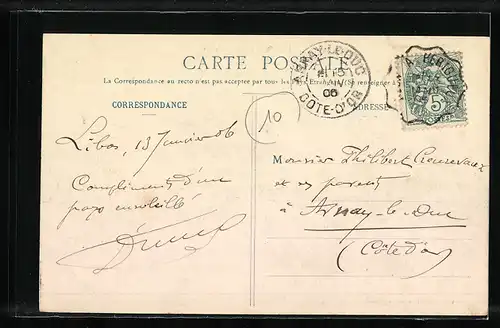 CARTE POSTALE
La Correspondance au recto n'est pas acceptée par tous les
(Se renseigner à
CORRESPONDANCE
ADRESSE
ARNAY-LE-DUC
15
06
COTE-D'OR
5
10
Libos, 13 Janvier 06
Compliments d'un
pays ensoleillé
Monsieur Philibert
et ses parents
à Arnay-le-Duc
(Côte d'or)